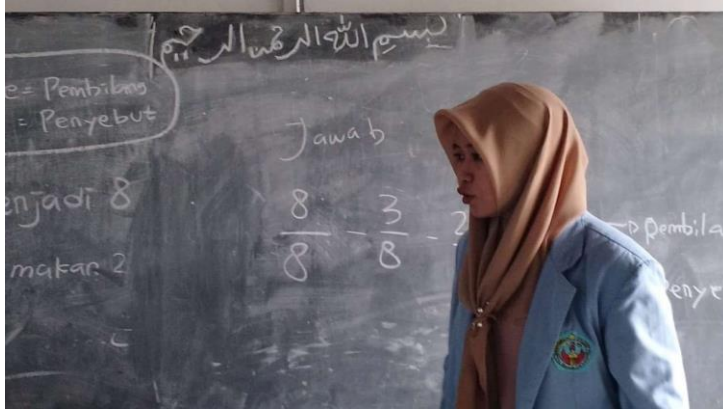 بسم الله الرحمن الرحيم
= Pembilang
= Penyebut
Jawab
njadi 8
makan 2
8/8 - 3/8 - 2
→ Pembila
enye